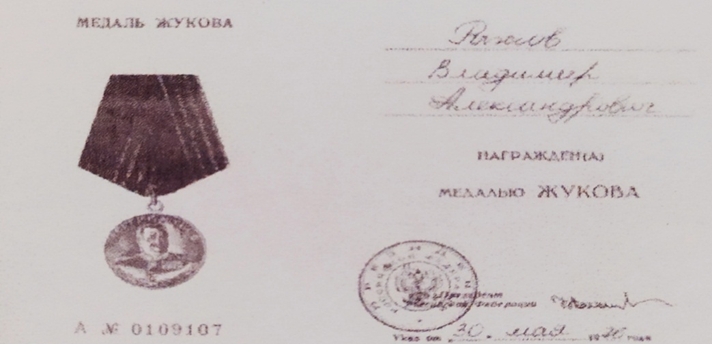 МЕДАЛЬ ЖУКОВА
А № 0109107
Владимир
Александрович
НАГРАЖДЕН(А)
МЕДАЛЬЮ ЖУКОВА
Президент
Российской Федерации
Указ от 30 мая года